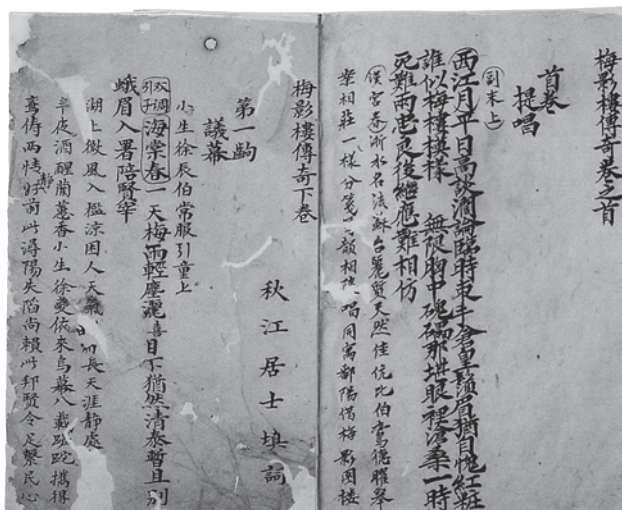 梅影樓傳奇卷之首
首卷
提唱
副末上
西江月平日高談濶論臨時束手倉皇鬚眉猶自愧紅粧
誰似梅樓模樣 無限胸中磈磊那堪眼裡滄桑一時
死難兩忠良後繼應難相仿
侯官 浙水名流蘇台麗質天然佳伉比伯鸞 耀舉
案相莊一樣分箋 韻相 唱同寓鄱陽借梅影閣樓
梅影樓傳奇下卷
秋江居士填詞
第一齣
議幕
小生徐辰伯常服引童上
双調引子海棠春一天梅雨輕塵灑喜目下猶然清泰暫且別
峨眉入署陪賢宰
湖上微風入檻涼困人天氣 日長天涯靜處
半夜酒醒蘭蕙香小生徐燮依來烏幕八載跎跎攜得
鸞儔兩情 好前此潯陽失陷尚賴此邦賢令足繫民心